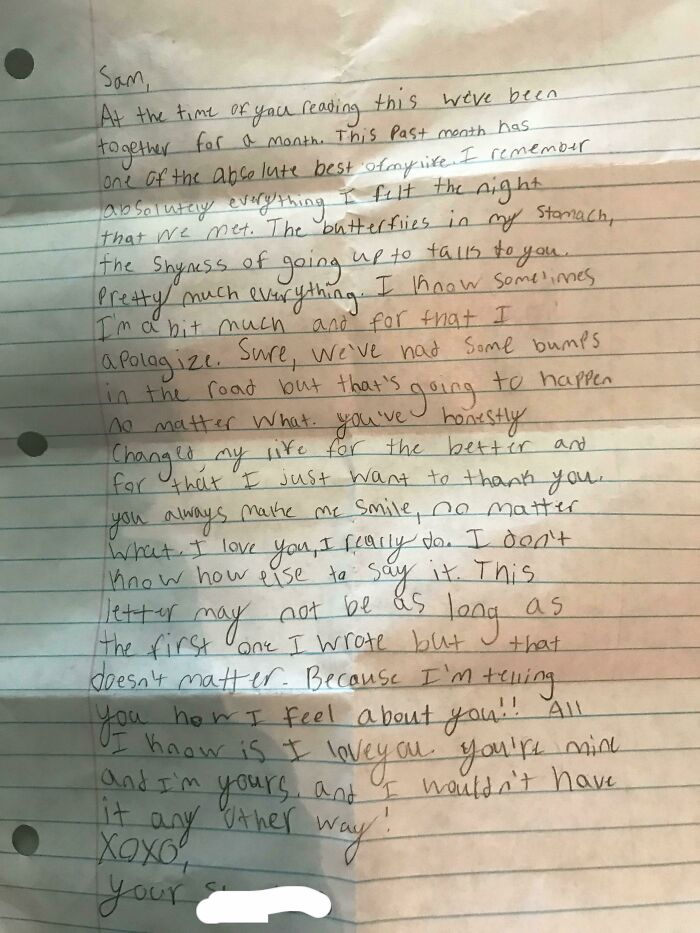 Sam,
At the time of you reading this we've been
together for a month. This past month has
one of the absolute best of my life. I remember
absolutely everything I felt the night
that we met. The butterflies in my stomach,
the shyness of going up to talk to you.
Pretty much everything. I know sometimes
I'm a bit much and for that I
apologize. Sure, we've had some bumps
in the road but that's going to happen
no matter what. you've honestly
Changed my life for the better and
for that I just want to thank you.
you always make me smile, no matter
what. I love you, I really do. I don't
know how else to say it. This
letter may not be as long as
the first one I wrote but that
doesn't matter. Because I'm telling
you how I feel about you!! All
I know is I love you. you're mine
and I'm yours, and I wouldn't have
it any other way!
XOXO,
your